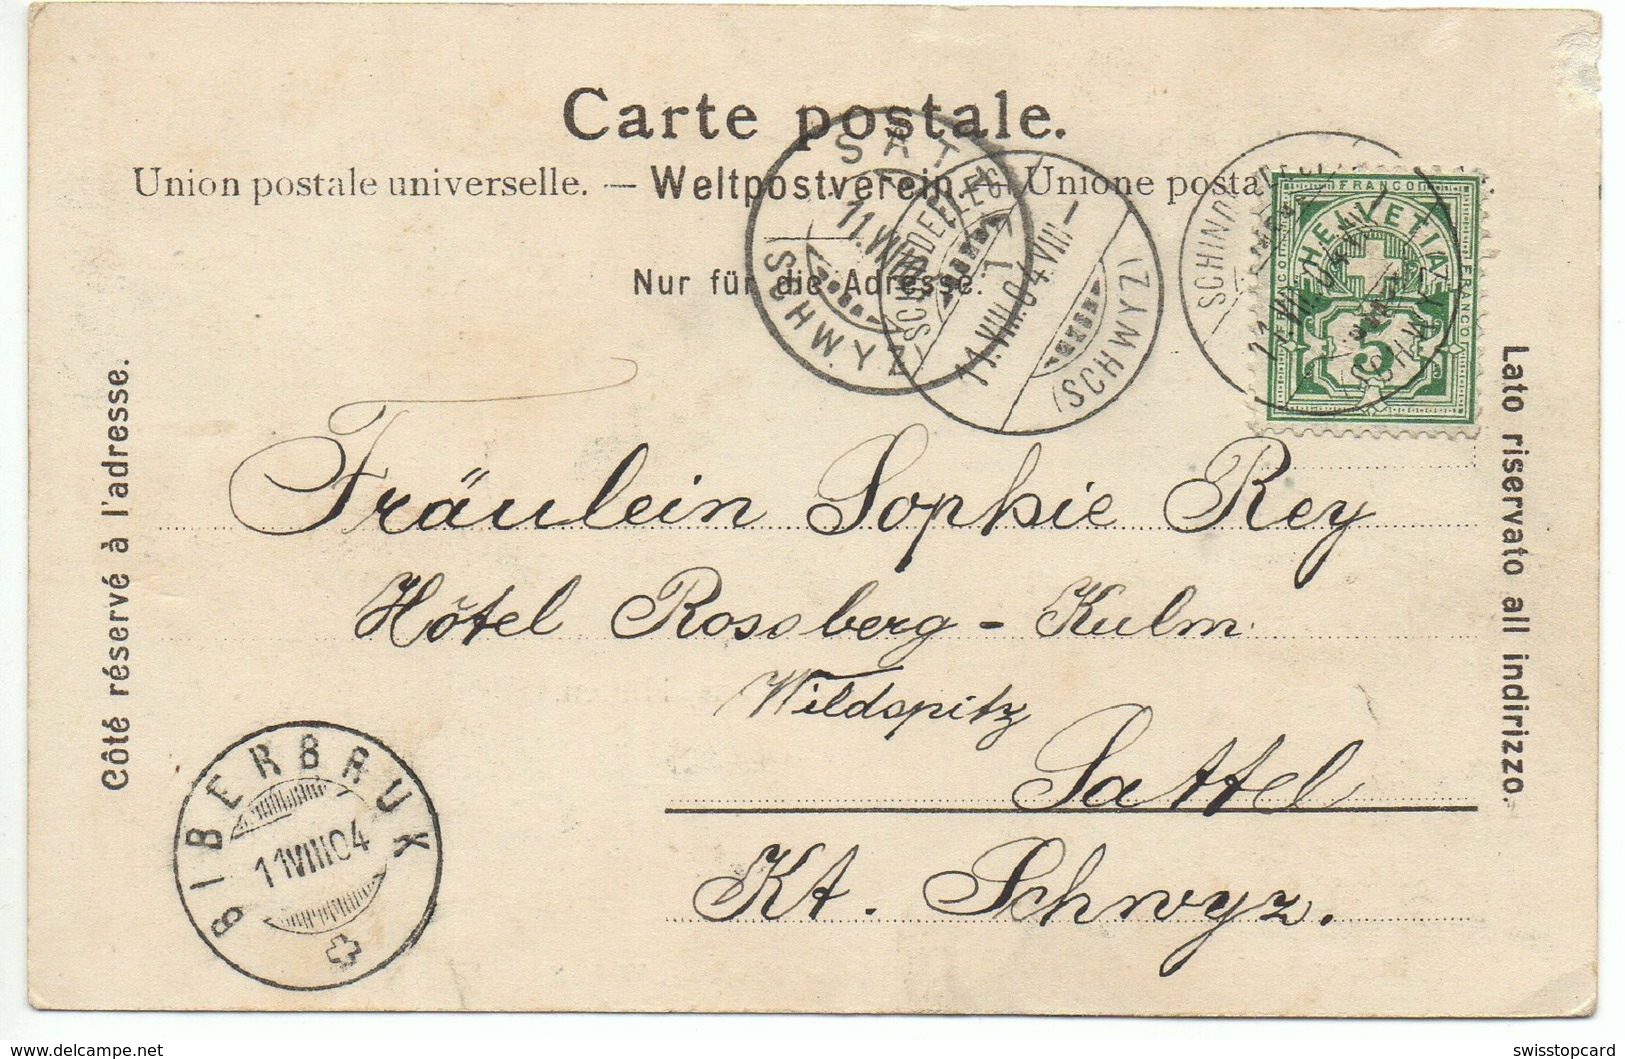 Carte postale.
Union postale universelle. — Weltpostverein. — Unione postale
Nur für die Adresse.
Côté réservé à l'adresse.
Lato riservato all indirizzo.
SATTEL
11.VIII
SCHWYZ
SCHINDELLEGI
11.VIII.04.VIII—
(SCHWYZ)
SCHINDELLEGI
11.VIII.04
(SCHWYZ)
FRANCO
HELVETIA
FRANCO
FRANCO
5
Fräulein Sophie Rey
Hôtel Rossberg - Kulm
Wildspitz
Sattel
Kt. Schwyz.
BIBERBRUK
11VIII04
www.delcampe.net
swisstopcard